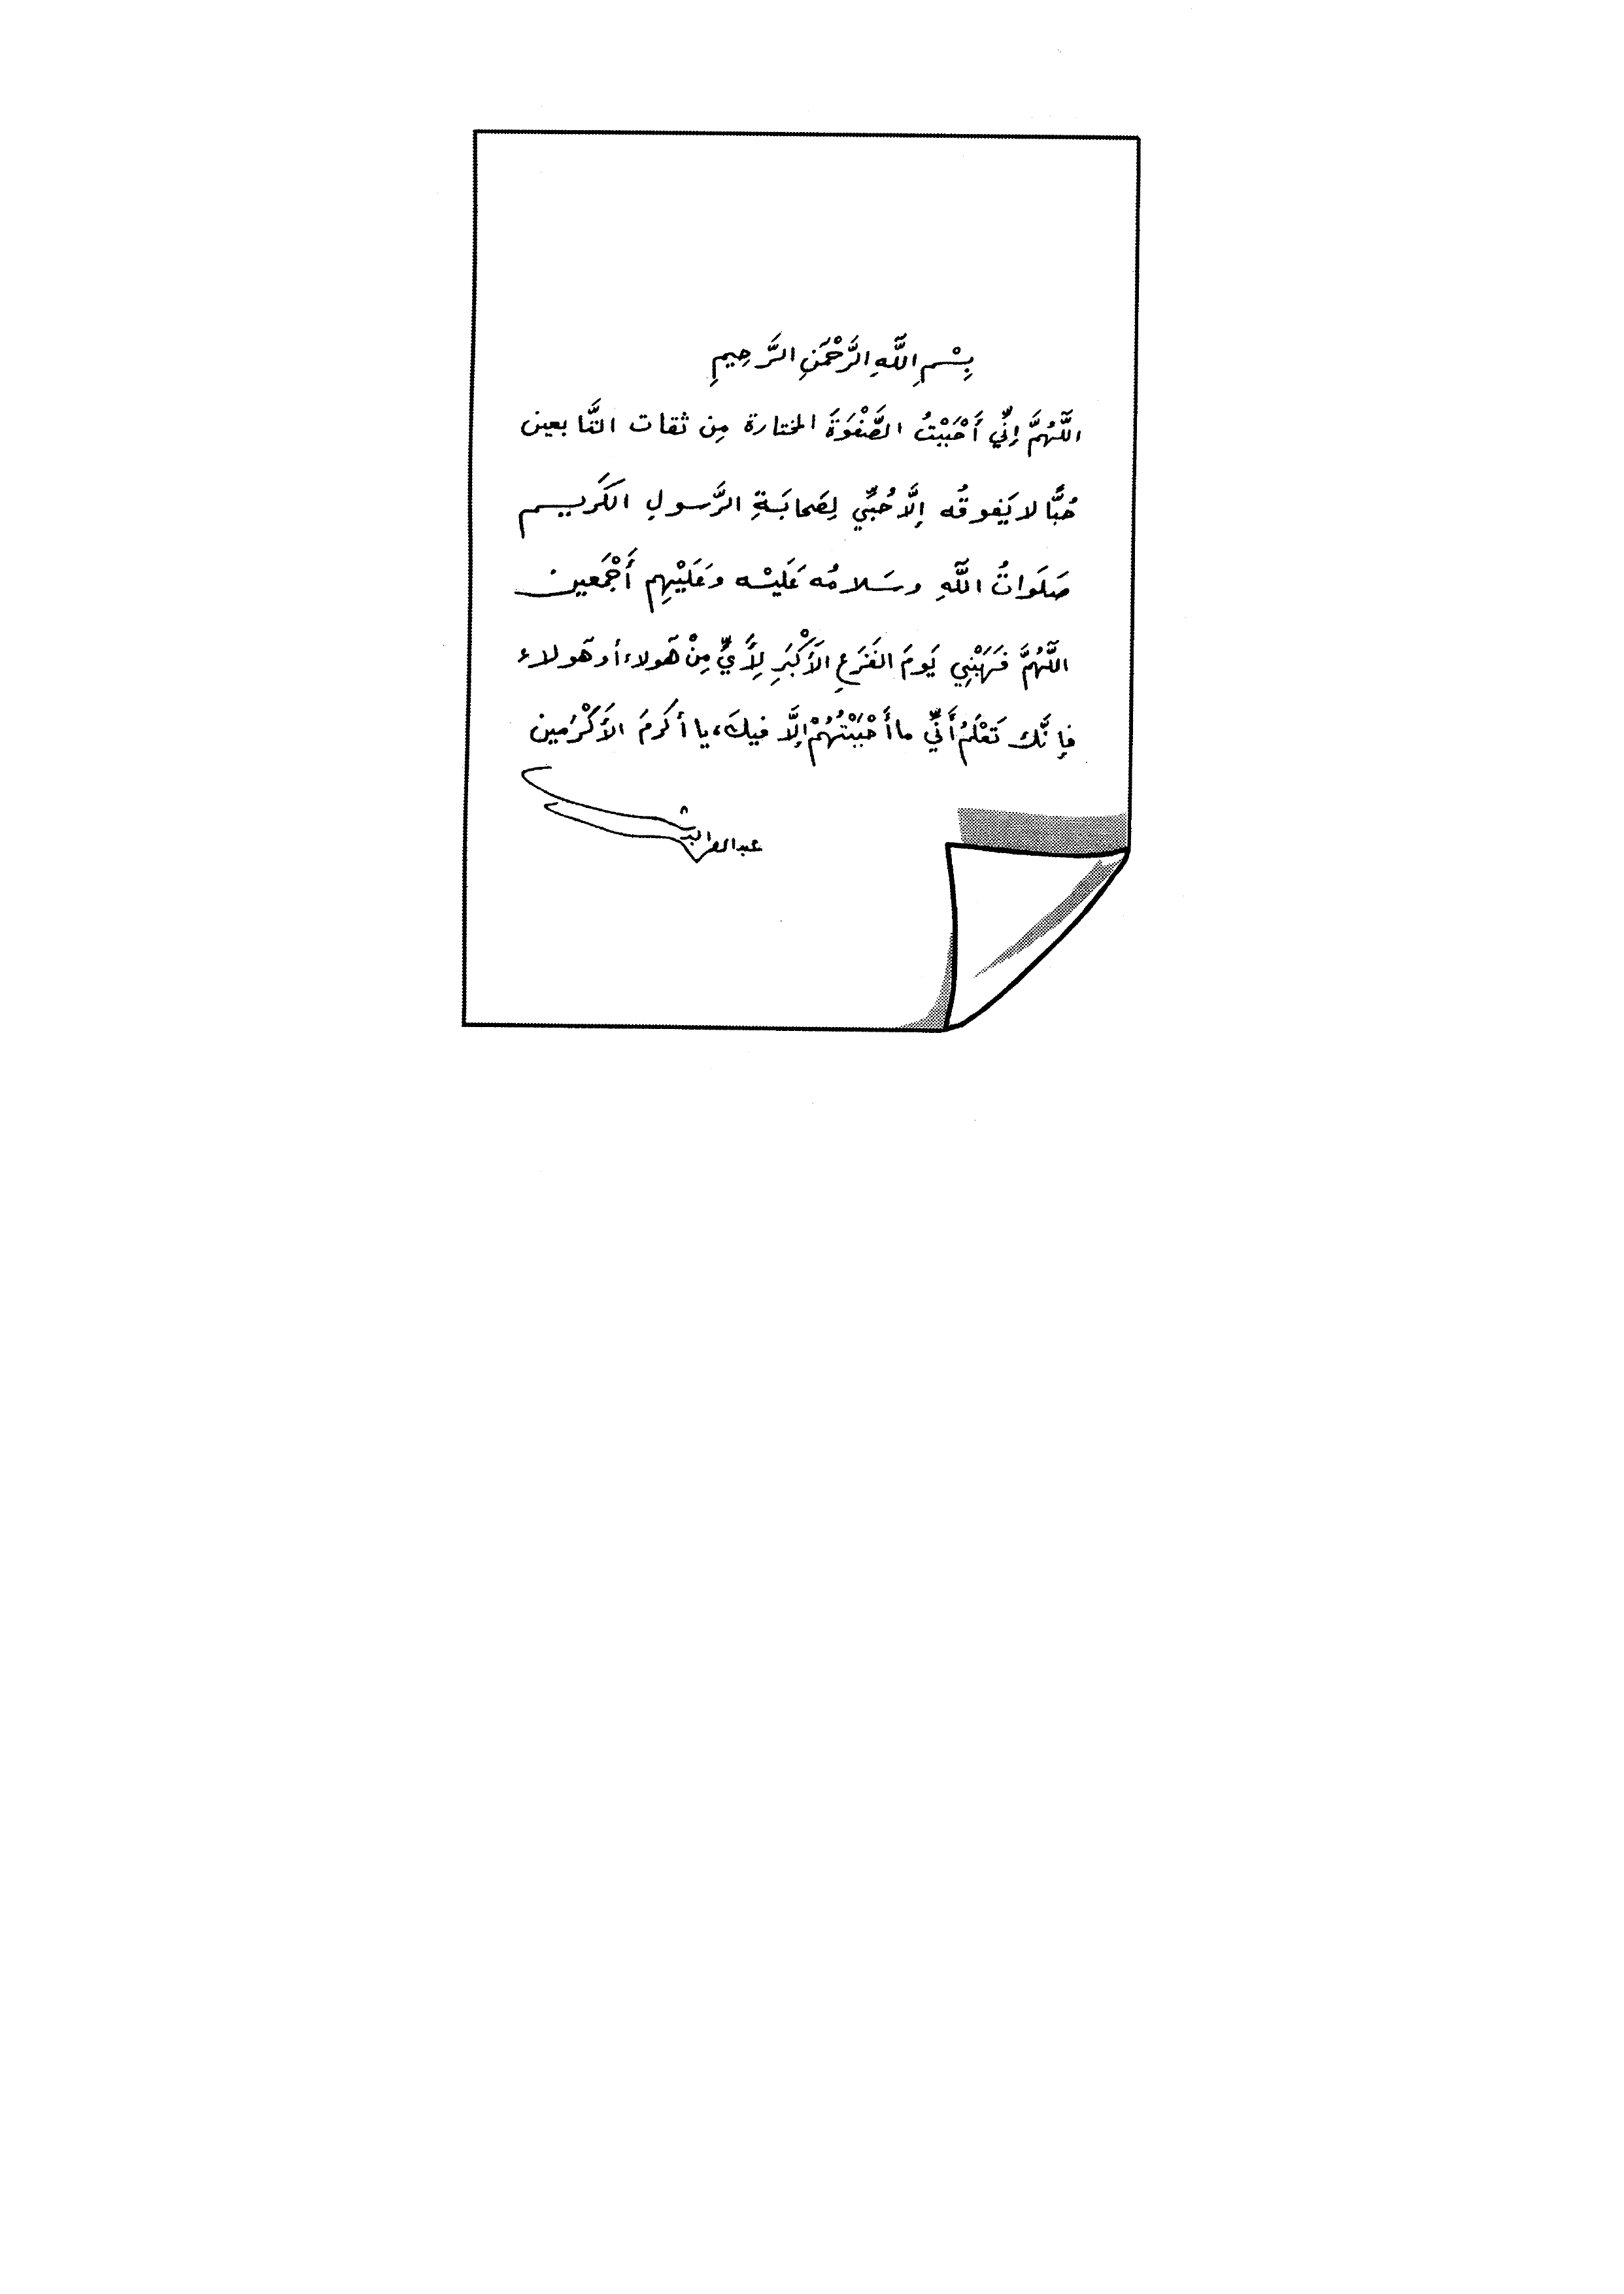 بِسْمِ اللَّهِ الرَّحْمَنِ الرَّحِيمِ
اللَّهُمَّ إِنِّي أَحْبَبْتُ الصَّفْوَةَ المختارة مِن ثقات التَّابعين
حُبًّا لا يَفوقُه إلَّا حُبِّي لِصَحابَةِ الرَّسولِ الكَريم
صَلَواتُ اللَّهِ وسَلامُه عَلَيْه وعَلَيْهِم أَجْمَعين
اللَّهُمَّ فَهَبْنِي يَومَ الفَزَعِ الأَكْبَرِ لِأَيٍّ مِنْ هَولاء أو هَولاء
فإنَّك تَعْلَمُ أَنِّي ما أَحْبَبْتُهُمْ إلَّا فيكَ، يا أكرمَ الأَكْرَمين